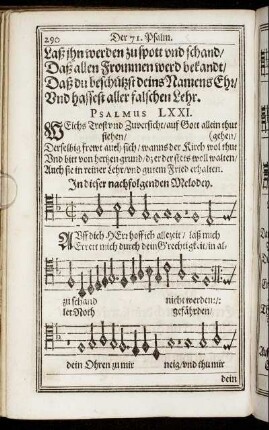 290 Der 71. Psalm.
Laß jhn werden zu spott vnd schand/
Daß allen Frommen werd bekandt/
Daß du beschützst deins Namens Ehr/
Vnd hassest aller falschen Lehr.
PSALMUS LXXI.
WElchs Trost vnd Zuversicht/ auf Gott allein thut
stehen/ gehen/
Derselbig frewt auch sich/ wanns der Kirch wol thut
Vnd bitt von hertzen grund/ daß der stets woll walten/
Auch sie in reiner Lehr/ vnd gutem Fried erhalten.
In dieser nachfolgenden Melodey.
AVff dich HErr hoff ich allezeit/ laß mich
Errett mich durch dein Grechtigkeit/ in al-
zu schand nicht werden:/:
ler Noth gefährden/
dein Ohren zu mir neig/ vnd thu mir
dein